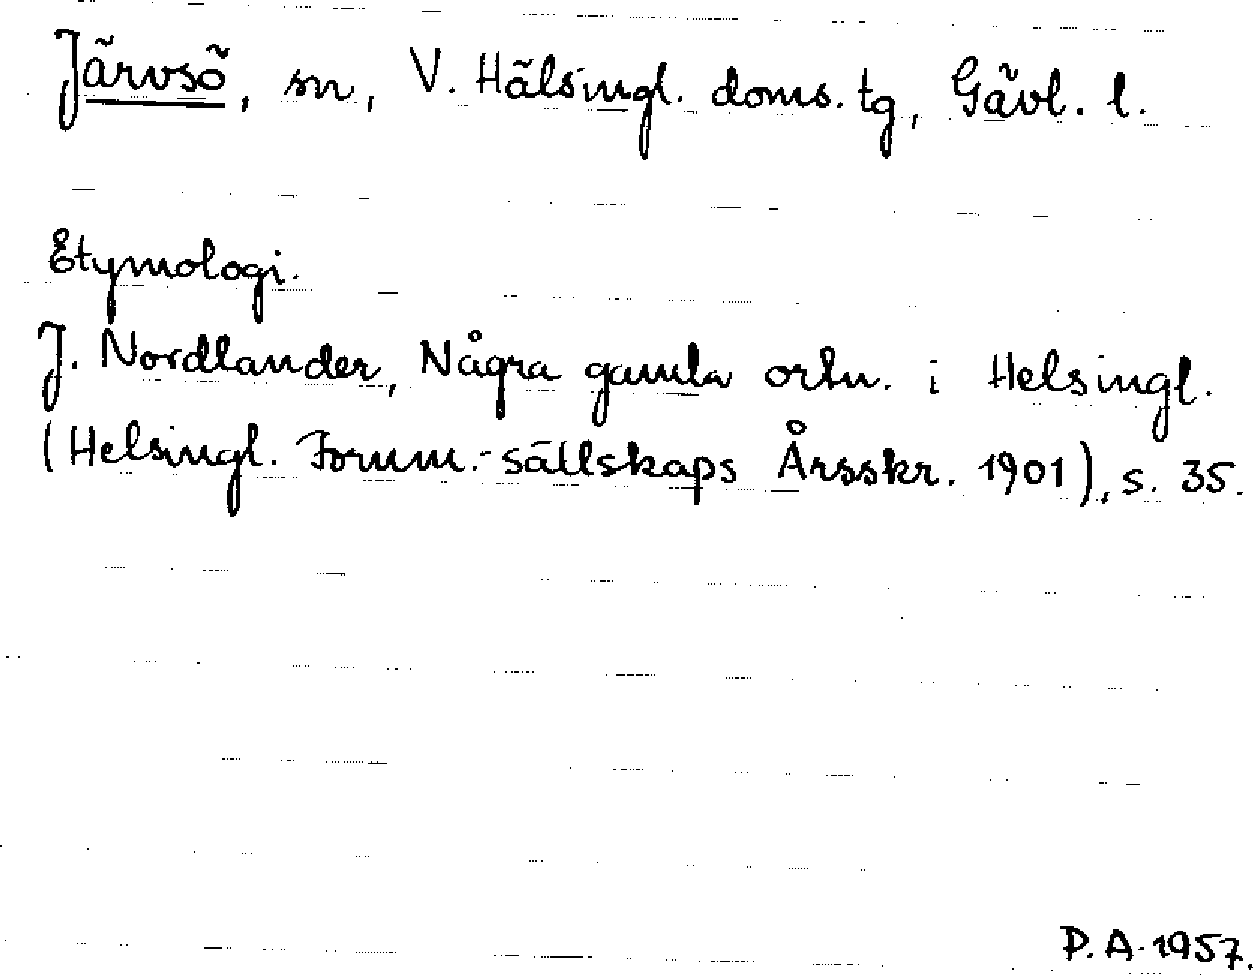 Järvsö, sn, V. Hälsingl. doms. tg, Gävl. l.
Etymologi.
J. Nordlander, Några gamla ortn. i Helsingl.
(Helsingl. Fornm.-sällskaps Årsskr. 1901), s. 35.
D. A. 1957.